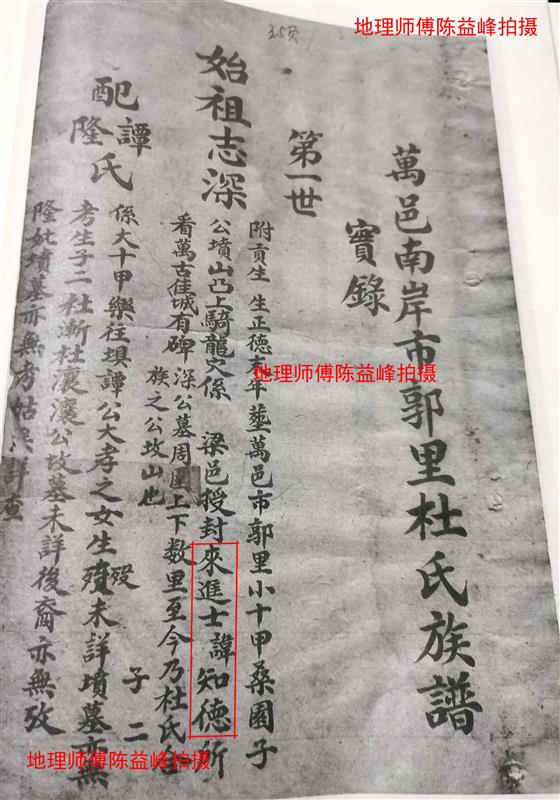 地理师傅陈益峰拍摄
35页
萬邑南岸市郭里杜氏族譜
實錄
第一世
始祖志深
附貢生 生正德末年塟萬邑市郭里小十甲桑園子
公墳山凸上騎龍穴係 梁邑授封來進士諱知德所
看萬古佳城有碑深公墓周圍上下数里至今乃杜氏
族之公坟山也
配譚
隆氏
子二
係大十甲樂往壩譚公大孝之女生殁未詳墳墓亦無
考生子二杜漸杜瀼瀼公坟墓未詳後裔亦無攷
隆妣墳墓亦無考姑俟詳查
地理师傅陈益峰拍摄
地理师傅陈益峰拍摄